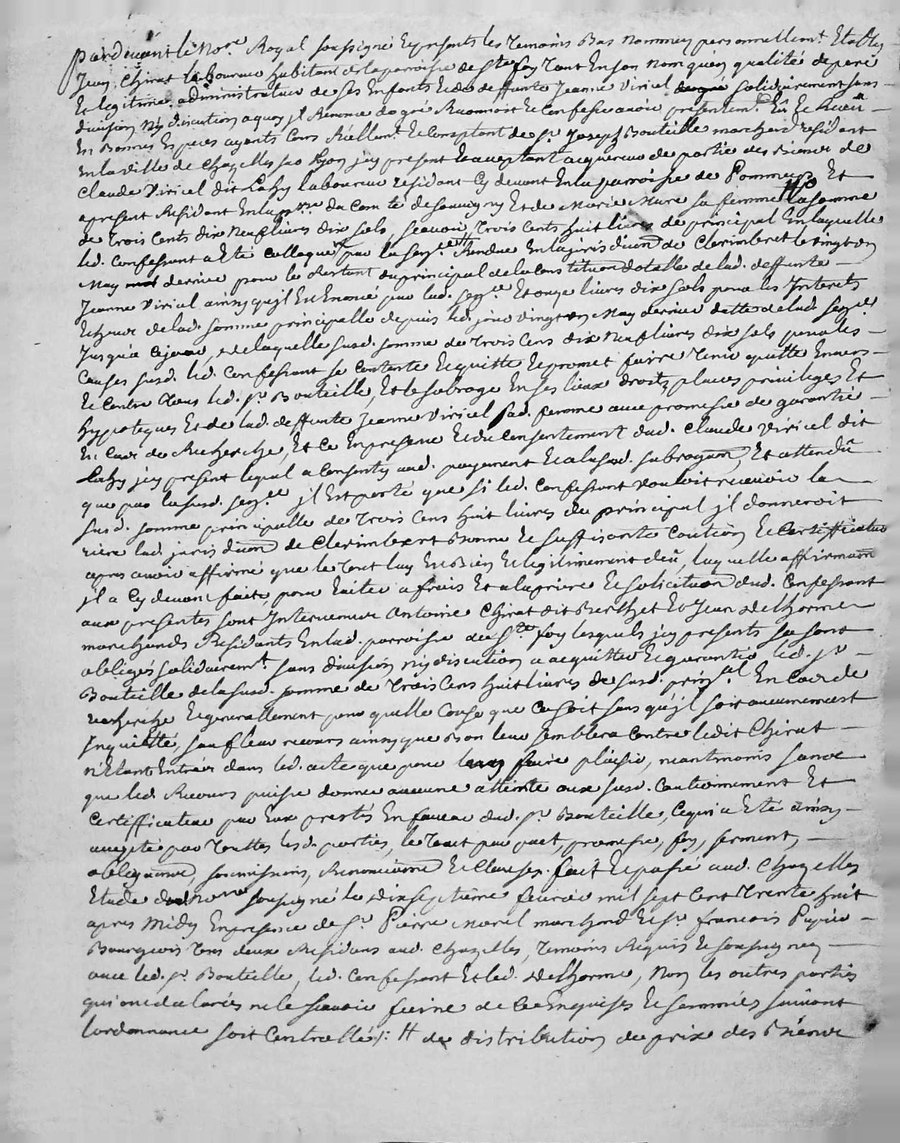 pardevant le No.re Royal soussigné Et presents les Temoins Bas Nommez personnellem.t Etably
Jean Chirat laboureur habitant de la paroisse de S.te foy Tant En son Nom quen qualité de pere
Et legitime administrateur de ses Enfants Et de deffunte Jeanne Viriel solidairement sans
division Ny discution a quoy jl Renonce de gré Reconnoit Et Confesse avoir presentem.t Eû Et Receu
En Bonnes Especes ayants Cours Reellem.t Et Comptant de S.r Joseph Bouteille marchand residant
En la ville de Chazelles sur Lyon jcy present Et acceptant acquereur de partie des Biens de
Claude Viriel dit Laby laboureur residant Cy devant En la parroisse de Pommeys Et
apresent Residant En la du Comté de Souvigny Et de Marie Mure sa femme la somme
de Trois Cents dix Neuf livres dix sols, scavoir Trois Cents huit livres de principal En laquelle
led. Confessant a Eté Colloqué par la sen.ce # Rendue En la jurisdiction de Clerimbert le vingt un
May dernier, pour le Restant du principal de la Constitution dotalle de lad. deffunte
Jeanne Viriel ainsy qu'jl Est Enoncé par lad. sen.ce Et onze livres dix sols pour les Interets
Echeus de lad. somme principalle depuis led. jour vingt un May dernier datte de lad. sen.ce
Jusqu'a Ce jour, de laquelle susd. somme de Trois Cens dix Neuf livres dix sols pour les
Causes susd. led. Confessant se Contente Et quitte Et promet faire Tenir quitte Envers
Et Contre Tous led. S.r Bouteille, Et le subroge En ses lieux droits places privileges Et
hypoteques Et de lad. deffunte Jeanne Viriel sad. femme avec promesse de garantie
En Cas de Recherche, Et Ce En presence Et du Consentement dud. Claude Viriel dit
Laby jcy present lequel a Consenty aud. payement Et a lad. subrogation, Et attendû
que par lasusd. sen.ce jl Est porté que si led. Confessant vouloit recevoir la
susd. somme principalle de Trois Cens huit livres du principal jl donneroit
riere lad. jurisdiction de Clerimbert Bonne Et suffisante Caution Et Certifficateur
apres avoir affirmé que le Tout luy Est Bien Et legitimement deû, laquelle affirmation
jl a Cy devant fait, pour Eviter a frais Et a la priere Et solicitation dud. Confessant
aux presentes sont Intervenus Antoine Chirat dit Berthet Et Jean Delhorme
marchands Residants En lad. parroisse de S.te foy lesquels jcy presents se sont
obligés solidairem.t sans division Ny discution a acquitter Et garantir led. S.r
Bouteille de lasusd. somme de Trois Cens huit livres de susd. prin.al En Cas de
recherche Et generallement pour quelle Cause que Ce soit sans qu'jl soit aucunement
Inquiétté, sauf leur recours ainsy que Bon leur semblera Contre ledit Chirat
n'Etant Entrés dans led. acte que pour luy faire plaisir, neantmoins sans
que led. Recours puisse donner aucune atteinte aux susd. Cautionnement Et
Certifficateur par Eux prestés En faveur dud. S.r Bouteille, Ce qui a Eté ainsy
accepté par Touttes lesd. parties, le Tout par pact, promesse, foy, serment,
obligations, soumissions, Renonciations Et Clauses. fait Et passé aud. Chazelles
Etude du No.re soussigné le dixseptième fevrier mil sept Cent Trente huit
apres Midy En presence de S.r Pierre Morel marchand Et S.r francois Pupier
Bourgeois Tous deux Residans aud. Chazelles, Temoins Requis Et soussignez
avec led. S.r Bouteille, led. Confessant Et led. Delhorme, Non les autres parties
qui ont declarés ne le scavoir faire de Ce Enquises Et sommées suivant
lordonnance soit Controllé /: # de distribution du prix des Biens